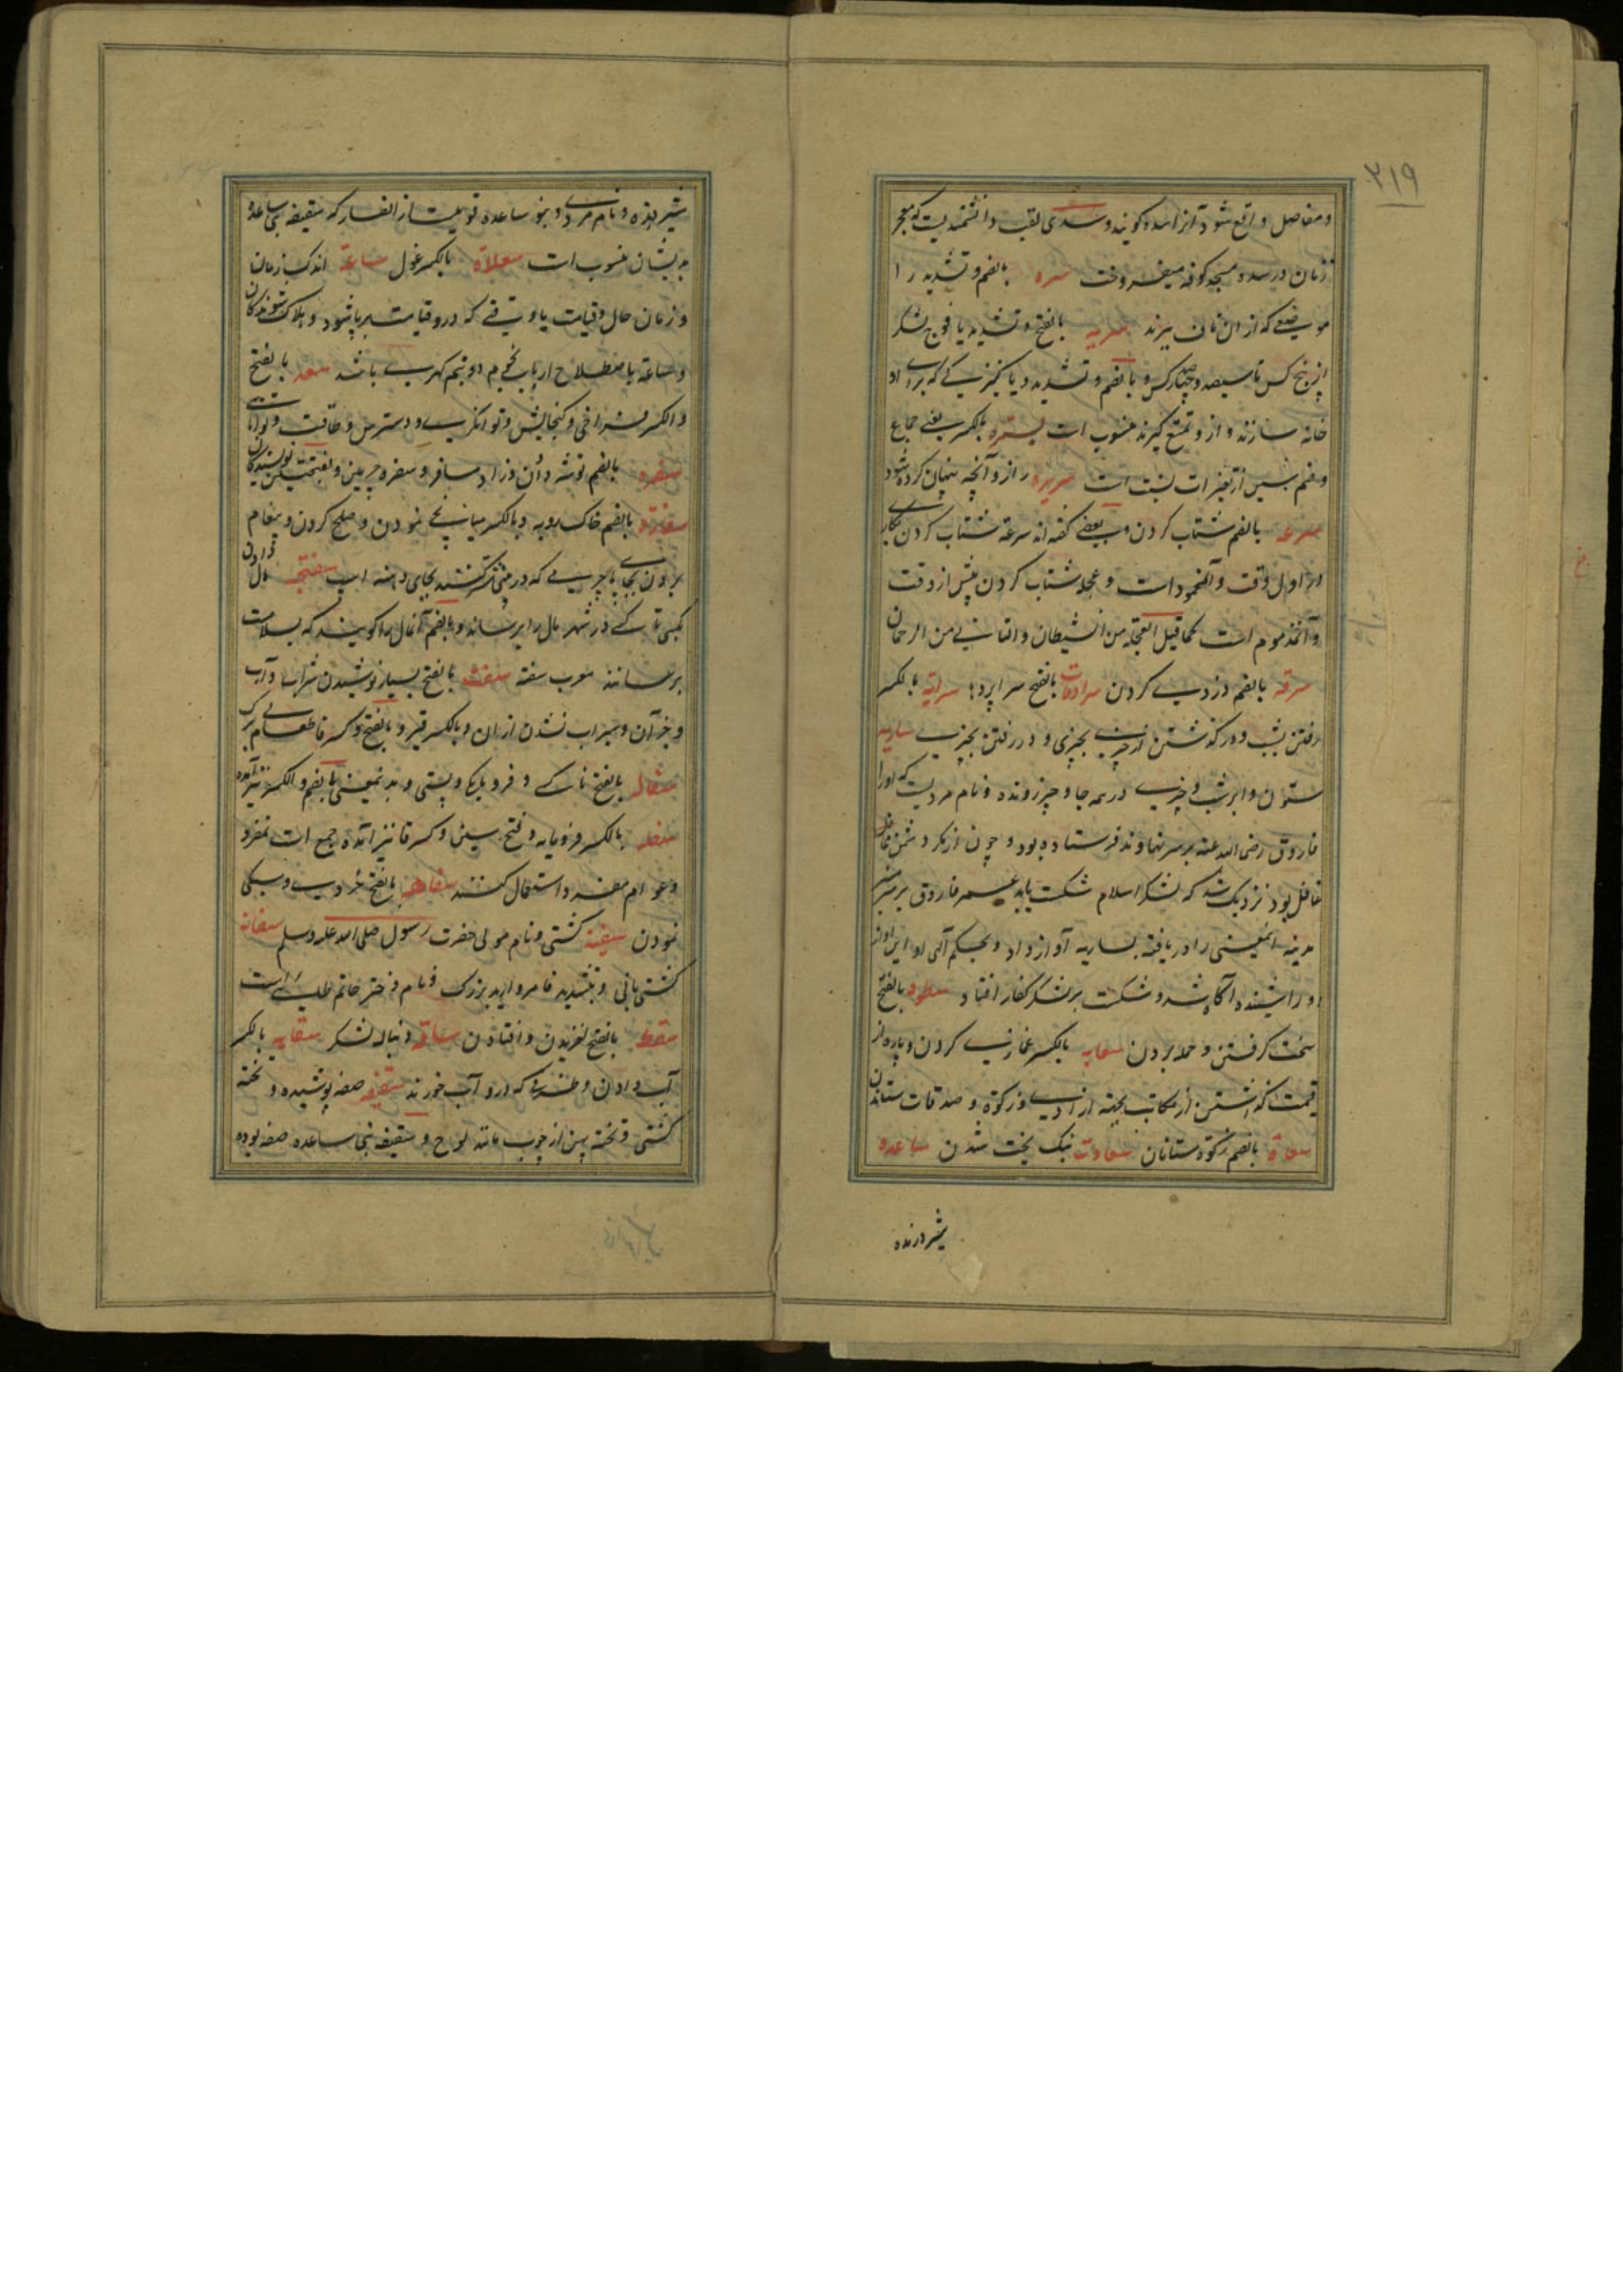 ۲۱۹
و مفاصل واقع شود آنرا سده گویند و سدی لقب دانشمندیست که معجر
زنان در سده مسجد کوفه میفروخت سره بالضم و تشدید را
موضعی که از ان ناف ببرند سریه بالفتح و تشدید یا فوج لشکر
از پنج کس تا سیصد و چهار کس و بالضم و تشدید و یا کنیزکی که برای او
خانه سازند و ازو تمتع گیرند منسوب است بسره بالکسر یعنی جماع
و ضم سین از تغیرات نسبت است سریره راز و آنچه پنهان کرده شود
سرعه بالضم شتاب کردن و بعضی گفته اند سرعة شتاب کردن بکاری
در اول وقت و آن محمود است و عجله شتاب کردن پیش از وقت
و آن مذموم است کما قیل العجلة من الشیطان والتانی من الرحمان
سرقه بالضم دزدی کردن سرادقات بالفتح سراپردها سرایه بالکسر
رفتن بشب و در گذشتن از چیزی بچیزی و در رفتن بچیزی ساریه
ستون و ابر شب و چیزی در همه جا و چیز رونده و نام مردیست که اورا
فاروق رضی الله عنه بر سر نهاوند فرستاده بود و چون از مکر دشمن غافل
غافل بود نزدیک شد که لشکر اسلام شکست یابد عمر فاروق بر منبر
مدینه اینمعنی را دریافته بساریه آواز داد و بحکم الهی او این آواز
او را شنیده آگاه شد و شکست بر لشکر کفار افتاد سطوه بالفتح
سخت گرفتن و حمله بردن سعایه بالکسر غمازی کردن و پاره از
قیمت گذاشتن از مکاتب بجهته آزادی و زکوة و صدقات ستاندن
سعاة بالضم زکوة ستانان سعادت نیک بخت شدن ساعده
شیر درنده
شیر درنده و نام مردی و بنو ساعده قومیست از انصار که سقیفه بنی ساعده
بدیشان منسوب است سعلاة بالکسر غول ساعة اندک زمان
و زمان حال و قیامت یا وقتی که درو قیامت برپا شود و هلاک شوندگان
و ساعة باصطلاح ارباب نجوم دو نیم گهری باشد سعه بالفتح
و الکسر فراخی و گنجایش و توانگری و دسترس و طاقت و توانایی
سفره بالضم توشه دان و زاد مسافر و سفره چرمین و بفتحتین نویسندگان
سفارة بالضم خاک روبه و بالکسر میانجی نمودن و صلح کردن و پیغام
بردن بجای یا چیزی که در بینی شتر کنند بجای دهنه اسپ سفتجه مال دادن
بکسی تا کسی در شهر مال را برساند و بالضم آنمال را گویند که بسلامت
برسانند معرب سفته سفت بالفتح بسیار نوشیدن شراب و آب
و جز آن و سیراب نشدن از ان و بالکسر قیر و بالفتح و کسر فا طعام بی برکت
سفاله بالفتح ناکسی و فرومایگی و پستی و بدینمعنی بالضم و الکسر نیز آمده
سفله بالکسر فرومایه و فتح سین و کسر فا نیز آمده جمع است نه مفرد
و عوام مفرد استعمال کنند سفاهه بالفتح خردی و سبکی
نمودن سفینه کشتی و نام مولی حضرت رسول صلی الله علیه وسلم سفانه
کشتی بانی و بتشدید فا مروارید بزرگ و نام دختر حاتم طایی است
سقط بالفتح لغزیدن و افتادن ساقه دنباله لشکر سقایه بالکسر
آب دادن و ظرفی که درو آب خورند سقیفه صفه پوشیده و تخته
کشتی و تخته پهن از چوب مانند لوح و سقیفه بنی ساعده صفه بوده